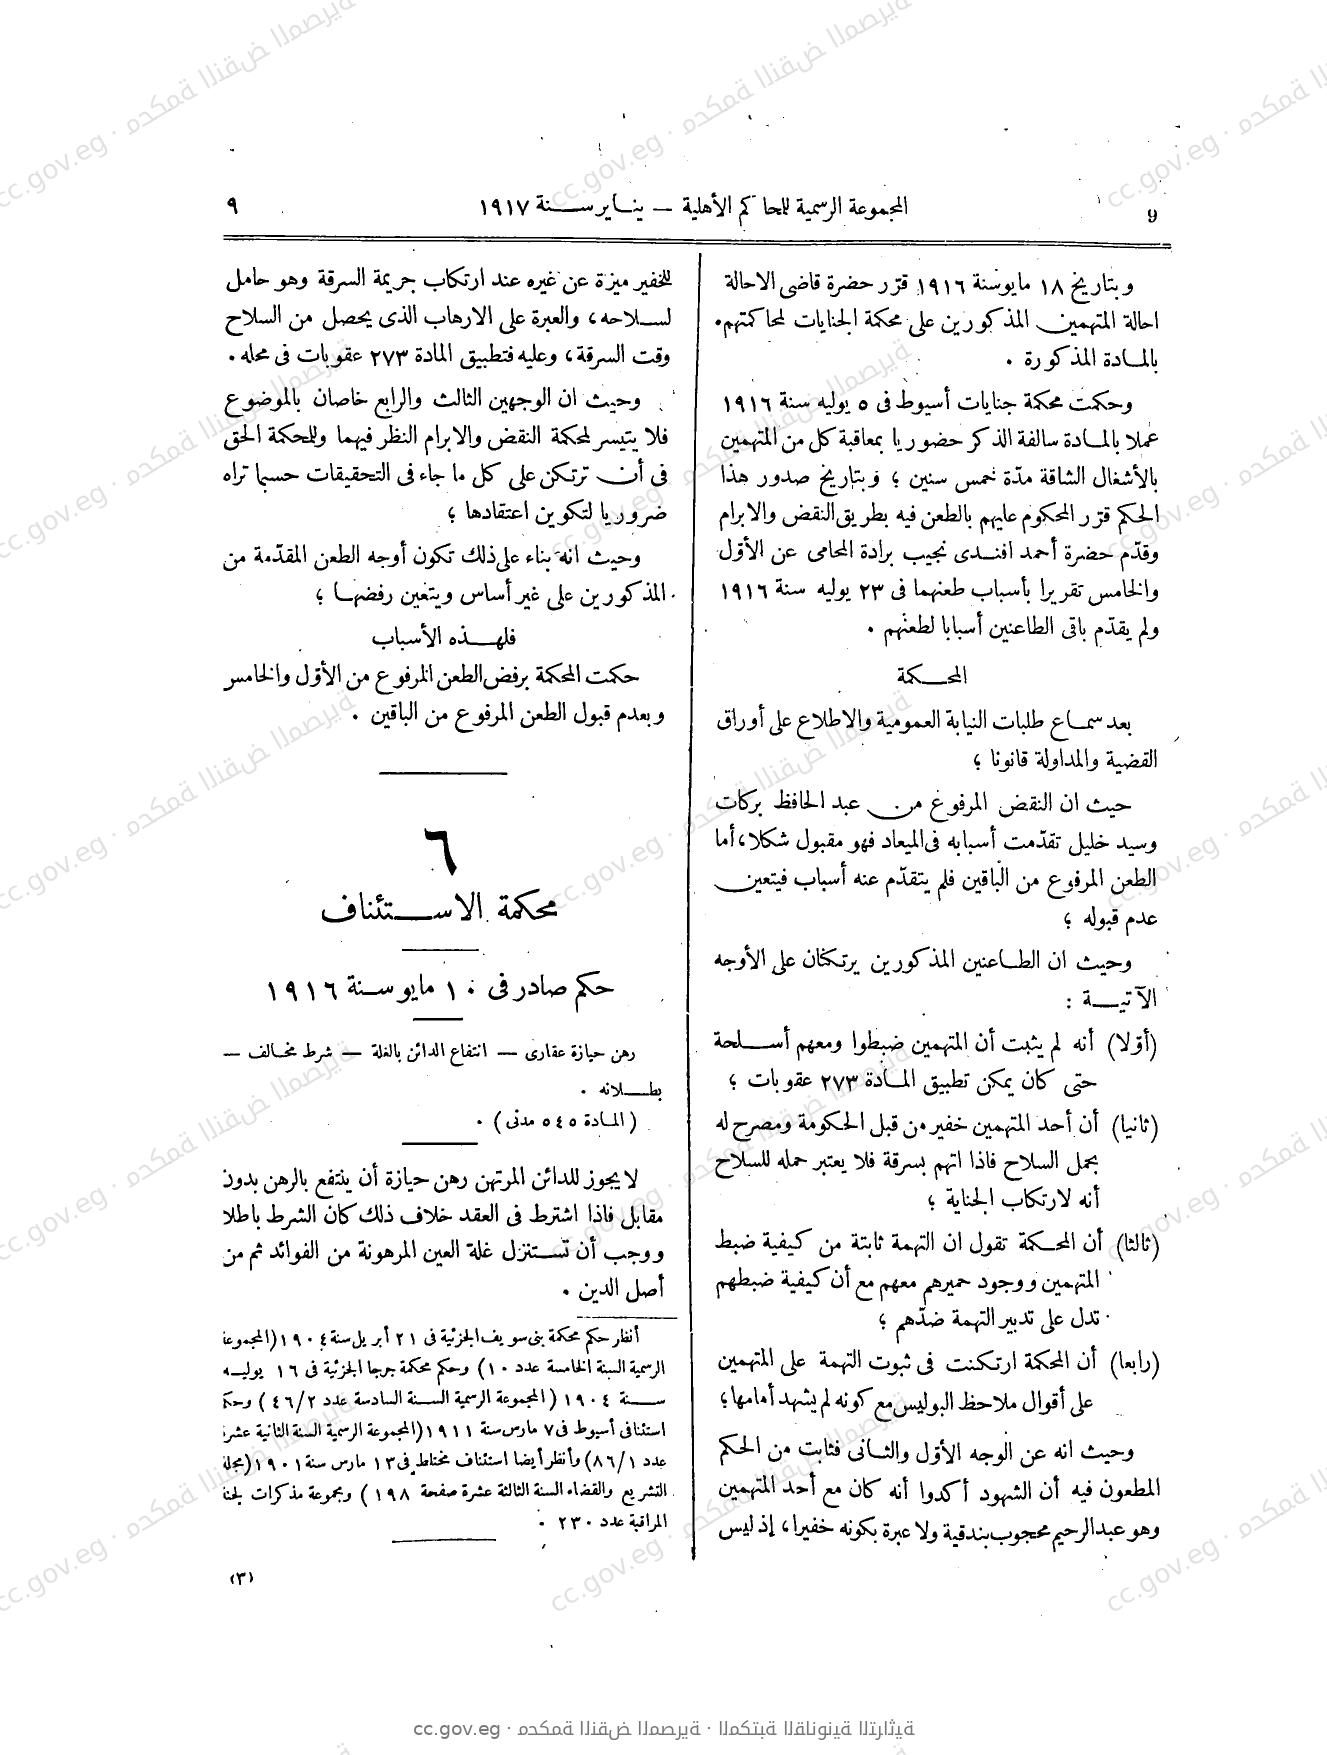 9
المجموعة الرسمية للمحاكم الأهلية – ينايرسنة ١٩١٧
٩
وبتاريخ ١٨ مايوسنة ١٩١٦ قرّر حضرة قاضى الاحالة
احالة المتهمين المذكورين على محكمة الجنايات لمحاكمتهم
بالمادة المذكورة .
وحكمت محكمة جنايات أسيوط فى ٥ يوليه سنة ١٩١٦
عملا بالمادة سالفة الذكر حضوريا بمعاقبة كل من المتهمين
بالأشغال الشاقة مدّة خمس سنين ؛ وبتاريخ صدور هذا
الحكم قرّر المحكوم عليهم بالطعن فيه بطريق النقض والابرام
وقدّم حضرة أحمد افندى نجيب برادة المحامى عن الأوّل
والخامس تقريرا بأسباب طعنهما فى ٢٣ يوليه سنة ١٩١٦
ولم يقدّم باقى الطاعنين أسبابا لطعنهم .
المحكمة
بعد سماع طلبات النيابة العمومية والاطلاع على أوراق
القضية والمداولة قانونا ؛
حيث ان النقض المرفوع من عبد الحافظ بركات
وسيد خليل تقدّمت أسبابه فى الميعاد فهو مقبول شكلا، أما
الطعن المرفوع من الباقين فلم يتقدّم عنه أسباب فيتعين
عدم قبوله ؛
وحيث ان الطاعنين المذكورين يرتكنان على الأوجه
الآتية :
(أوّلا) أنه لم يثبت أن المتهمين ضبطوا ومعهم أسلحة
حتى كان يمكن تطبيق المادة ٢٧٣ عقوبات ؛
(ثانيا) أن أحد المتهمين خفير من قبل الحكومة ومصرح له
بحمل السلاح فاذا اتهم بسرقة فلا يعتبر حمله للسلاح
أنه لارتكاب الجناية ؛
(ثالثا) أن المحكمة تقول ان التهمة ثابتة من كيفية ضبط
المتهمين ووجود حميرهم معهم مع أن كيفية ضبطهم
تدل على تدبير التهمة ضدّهم ؛
(رابعا) أن المحكمة ارتكنت فى ثبوت التهمة على المتهمين
على أقوال ملاحظ البوليس مع كونه لم يشهد أمامها؛
وحيث انه عن الوجه الأوّل والثانى فثابت من الحكم
المطعون فيه أن الشهود أكدوا أنه كان مع أحد المتهمين
وهو عبد الرحيم محجوب بندقية ولا عبرة بكونه خفيرا، إذ ليس
للخفير ميزة عن غيره عند ارتكاب جريمة السرقة وهو حامل
لسلاحه، والعبرة على الارهاب الذى يحصل من السلاح
وقت السرقة، وعليه فتطبيق المادة ٢٧٣ عقوبات فى محله .
وحيث ان الوجهين الثالث والرابع خاصان بالموضوع
فلا يتيسر لمحكمة النقض والابرام النظر فيهما وللمحكمة الحق
فى أن ترتكن على كل ما جاء فى التحقيقات حسبما تراه
ضروريا لتكوين اعتقادها ؛
وحيث انه بناء على ذلك تكون أوجه الطعن المقدّمة من
المذكورين على غير أساس ويتعين رفضها ؛
فلهذه الأسباب
حكمت المحكمة برفض الطعن المرفوع من الأوّل والخامس
وبعدم قبول الطعن المرفوع من الباقين .
٦
محكمة الاستئناف
حكم صادر فى ١٠ مايو سنة ١٩١٦
رهن حيازة عقارى – انتفاع الدائن بالغلة – شرط مخالف –
بطلانه .
(المادة ٥٤٥ مدنى) .
لا يجوز للدائن المرتهن رهن حيازة أن ينتفع بالرهن بدون
مقابل فاذا اشترط فى العقد خلاف ذلك كان الشرط باطلا
ووجب أن تستنزل غلة العين المرهونة من الفوائد ثم من
أصل الدين .
أنظار حكم محكمة بنى سويف الجزئية فى ٢١ أبريل سنة ١٩٠٤ (المجموعة
الرسمية السنة الخامسة عدد ١٠) وحكم محكمة جرجا الجزئية فى ١٦ يوليه
سنة ١٩٠٤ (المجموعة الرسمية السنة السادسة عدد ٤٦/٢) وحكم
استئنافى أسيوط فى ٧ مارس سنة ١٩١١ (المجموعة الرسمية السنة الثانية عشرة
عدد ٨٦/١) وأنظر أيضا استئناف مختلط فى ١٣ مارس سنة ١٩٠١ (مجلة
التشريع والقضاء السنة الثالثة عشرة صفحة ١٩٨) ومجموعة مذكرات لجنة
المراقبة عدد ٢٣٠ .
(٣)
cc.gov.eg · محكمة النقض المصرية · المكتبة القانونية التراثية